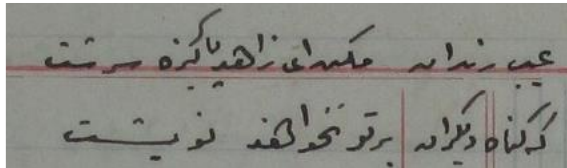 عیب رندان مکن ای زاهد پاکیزه سرشت
که گناه دگران بر تو نخواهند نوشت